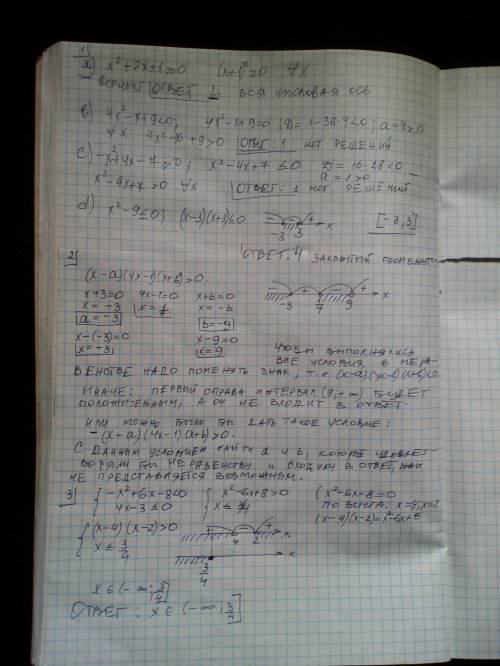 1)
a) x²+2x+1≥0 (x+1)²≥0 ∀x
ОТВЕТ 2 ВСЯ ЧИСЛОВАЯ ОСЬ
b) 4x²-x+9<0; 4x²-x+9=0; D=1-36·4<0; a=4>0
∀x 4x²-x+9>0 ОТВЕТ: 1 НЕТ РЕШЕНИЙ
c) -x²+4x-7≥0; x²-4x+7≤0 D=16-28<0
a=1>0
x²-4x+7>0 ∀x ОТВЕТ: 1 НЕТ РЕШЕНИЙ
d) x²-9≤0; (x-3)(x+3)≤0 -3 3 + x [-3,3]
ОТВЕТ: 4 ЗАКРЫТЫЙ ПРОМЕЖУТОК
2)
(x-a)(4x-1)(x+b)>0
x+3=0 4x-1=0 x+b=0
x=-3 x=¼ x=-b -3 ¼ 9 x
a=-3 b=-9
x-(-3)=0 x-9=0
x=-3 x=9
ЧТОБЫ ВЫПОЛНЯЛИСЬ
ВСЕ УСЛОВИЯ, В НЕРА-
ВЕНСТВЕ НАДО ПОМЕНЯТЬ ЗНАК, Т.Е (x-a)(4x-1)(x+b)<0.
ИНАЧЕ: ПЕРВЫЙ СПРАВА ИНТЕРВАЛ (9;+∞) БУДЕТ
ПОЛОЖИТЕЛЬНЫМ, А ОН НЕ ВХОДИТ В ОТВЕТ
ИЛИ МОЖНО БЫЛО БЫ ДАТЬ ТАКОЕ УСЛОВИЕ:
-(x-a)(4x-1)(x+b)>0.
С ДАННЫМ УСЛОВИЕМ НАЙТИ a И b, КОТОРЫЕ УДОВЛЕТ-
ВОРЯЛИ БЫ НЕРАВЕНСТВУ И ВХОДИЛИ В ОТВЕТ,
НЕ ПРЕДСТАВЛЯЕТСЯ ВОЗМОЖНЫМ.
3) { -x²+6x-8<0 { x²-6x+8>0 (x²-6x+8=0
4x-3≤0 x≤3/4 ПО ВИЕТА: x=4; x=2
(x-4)(x-2)=x²-6x+8
{ (x-4)(x-2)>0 + - + x
x≤3/4 4 2
3/4 x
x∈(-∞;3/4]
ОТВЕТ: x∈(-∞;3/4]